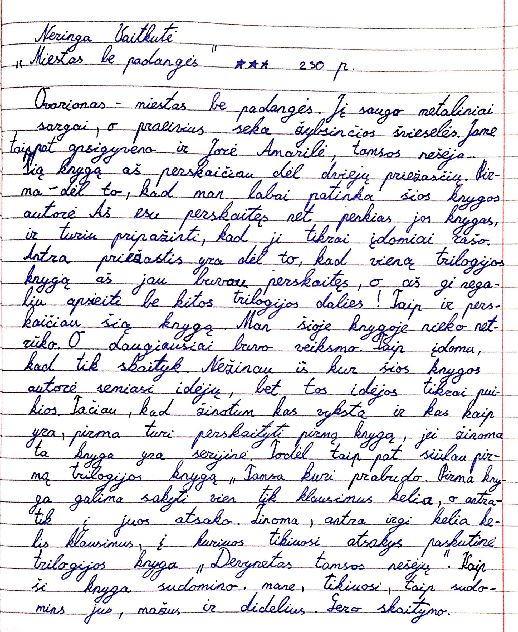 Neringa Vaitkutė
„Miestas be padangės" *** 230 p.
Ovarionas - miestas be padangės. Jį saugo metaliniai
sargai, o praeivius seka žybsinčios švieselės. Jame
taip pat apsigyveno ir Jorė Amarilė, tamsos nešėja.
Šią knygą aš perskaičiau dėl dviejų priežasčių. Pir-
ma - dėl to, kad man labai patinka šios knygos
autorė. Aš esu perskaitęs net penkias jos knygas,
ir turiu pripažinti, kad ji tikrai įdomiai rašo.
Antra priežastis yra dėl to, kad vieną trilogijos
knygą aš jau buvau perskaitęs, o aš gi nega-
liu apseiti be kitos trilogijos dalies! Taip ir pers-
kaičiau šią knygą. Man šioje knygoje nieko net-
rūko. O daugiausiai buvo veiksmo. Taip įdomu,
kad tik skaityk. Nežinau iš kur šios knygos
autorė semiasi idėjų, bet tos idėjos tikrai pui-
kios. Tačiau, kad žinotum kas vyksta ir kas kaip
yra, pirma turi perskaityti pirmą knygą, jei žinoma
ta knyga yra serijinė. Todėl taip pat siūlau pir-
mą trilogijos knygą „Tamsa kuri prabudo. Pirma kny-
ga galima sakyti vien tik klausimus kelia, o antra-
tik į juos atsako. Žinoma, antra irgi kelia ke-
lis klausimus, į kuriuos tikiuosi atsakys paskutinė
trilogijos knyga „Devynetas tamsos nešėjų". Kaip
ši knyga sudomino mane, tikiuosi, taip sudo-
mins jus, mažus ir didelius. Gero skaitymo.